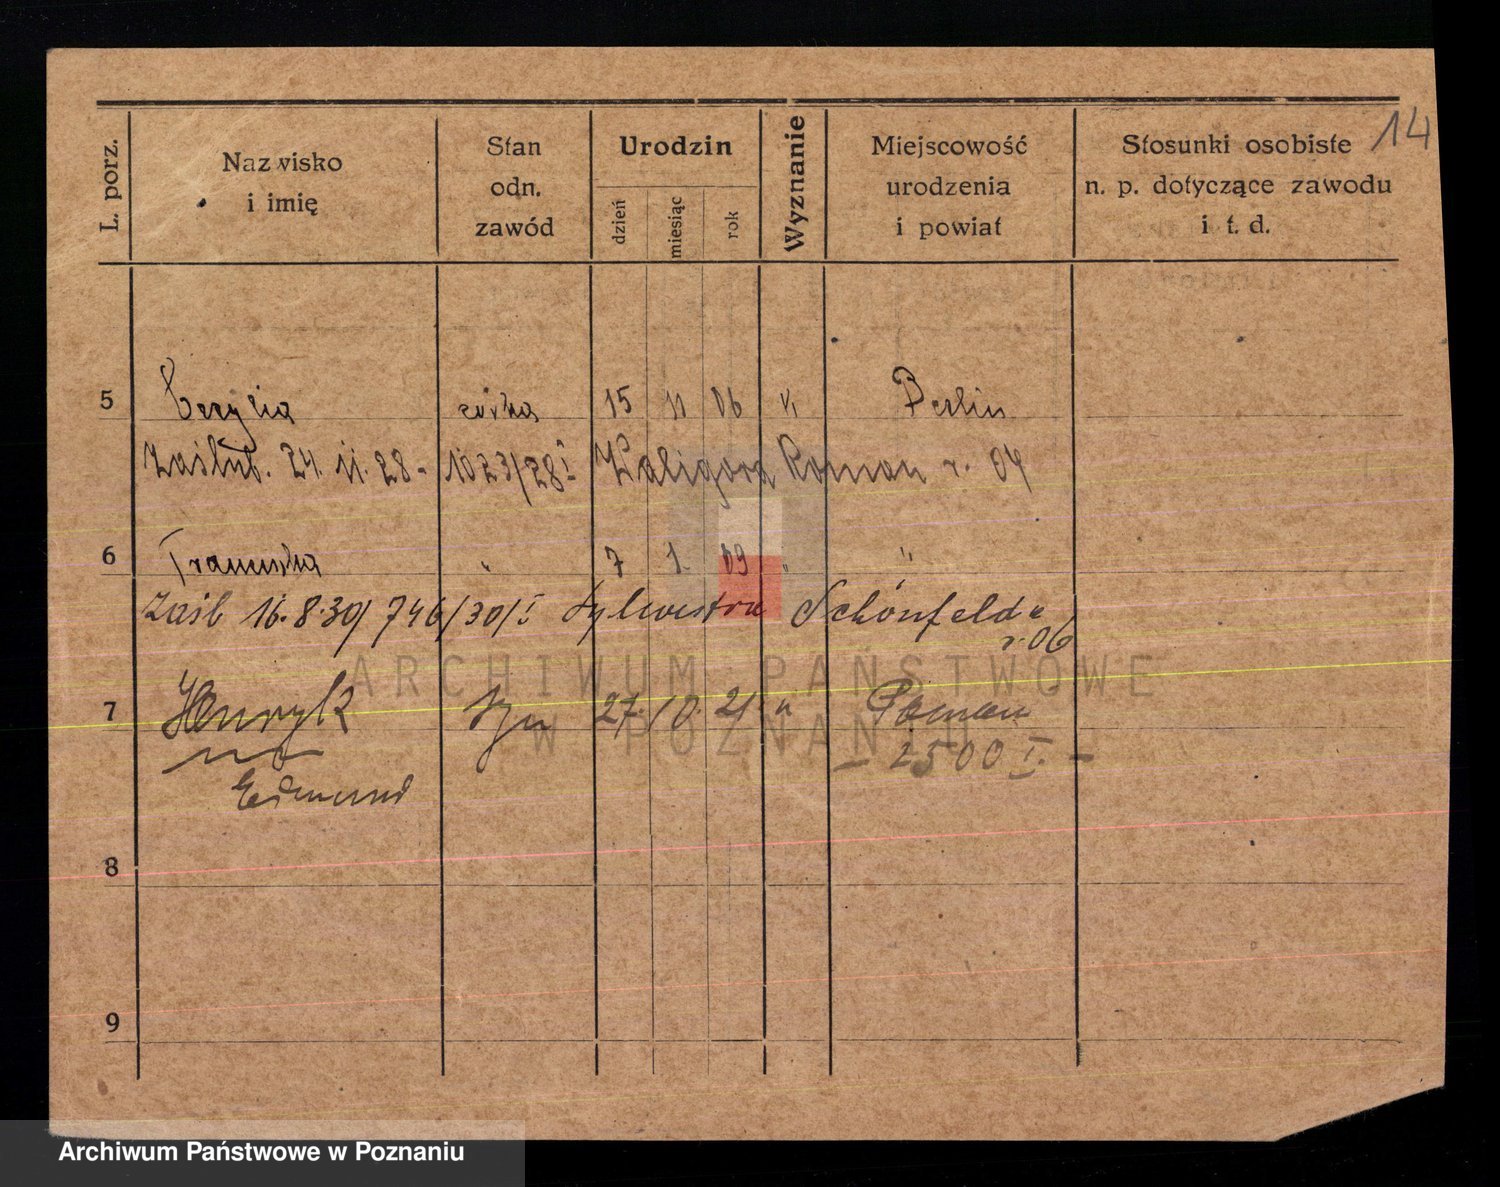 14
L. porz.
Nazwisko i imię
Stan odn. zawód
Urodzin
dzień
miesiąc
rok
Wyznanie
Miejscowość urodzenia i powiat
Stosunki osobiste n. p. dotyczące zawodu i t. d.
5 Cecylia córka 15 11 06 k Berlin
Zaślub. 24. 11. 28 - 1023/28 I Kaligora Roman r. 04
6 Franciszka " 7 1. 09 " "
Zaśl 16.8.30/ 746/30/I Sylwestra Schönfelda
r. 06
7 Henryk syn 27. 10. 21. " Poznań
- 2500 I. -
Edmund
8
9
ARCHIWUM PAŃSTWOWE
W POZNANIU
Archiwum Państwowe w Poznaniu